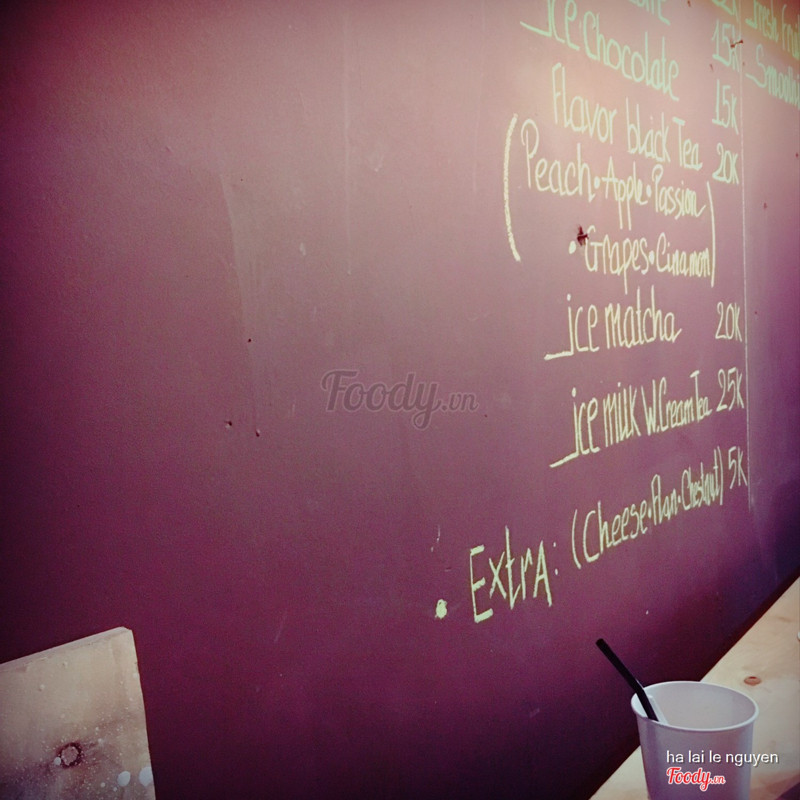 ice Chocolate 15K
15K
Flavor black Tea 20K
(Peach • Apple • Passion
• Grapes • Cinamon)
ice matcha 20K
ice milk W.Cream Tea 25K
• Extra: (Cheese • Flan • Chestnut) 5K
Fresh Fruit
Smoothi
Foody.vn
ha lai le nguyen
Foody.vn